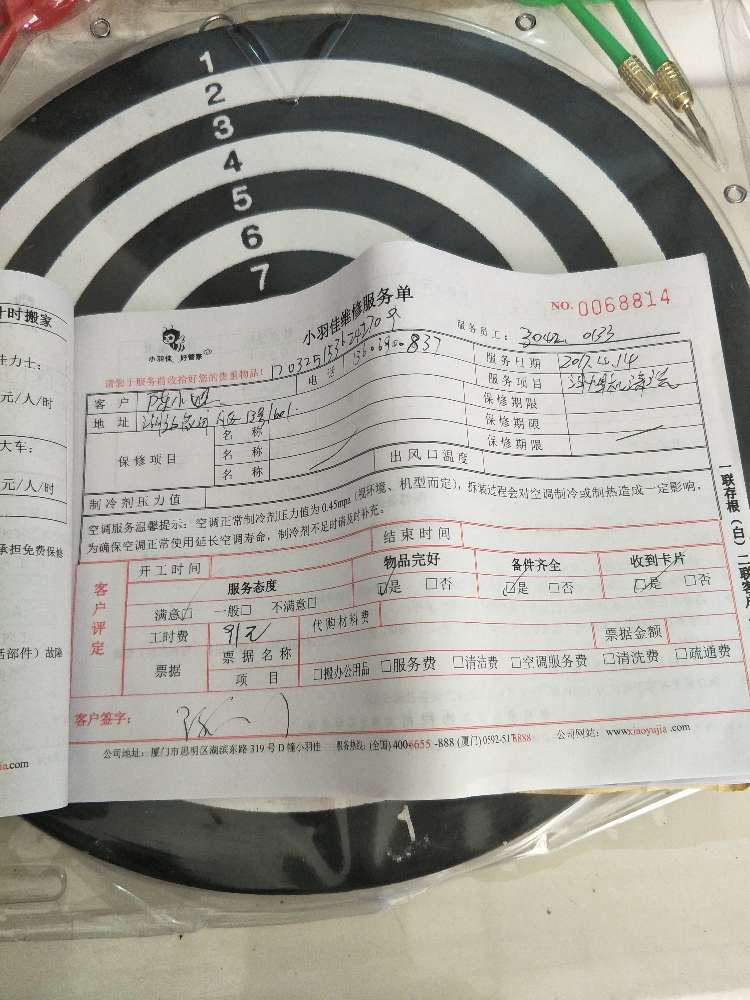 1
2
3
4
5
6
7
计时搬家
元/人/时
大车:
元/人/时
承担免费保修
部件）故障
小羽佳 好管家
小羽佳维修服务单
NO. 0068814
服务员工: 3042. 0133
请您于服务前收拾好您的贵重物品!
客户
电话
服务日期
地址
服务项目
保修项目
名称
保修期限
名称
保修期限
名称
保修期限
制冷剂压力值
出风口温度
空调服务温馨提示: 空调正常制冷剂压力值为0.45mpa (视环境、机型而定), 拆装过程会对空调制冷或制热造成一定影响,
为确保空调正常使用延长空调寿命, 制冷剂不足时请及时补充。
一联存根（白）二联客户
开工时间
结束时间
客户评定
服务态度
物品完好
备件齐全
收到卡片
满意☑ 一般□ 不满意□
☑是 □否
☑是 □否
☑是 □否
工时费 91元
代购材料费
票据
票据名称
票据金额
项目
□搬办公用品 □服务费 □清洁费 □空调服务费 □清洗费 □疏通费
客户签字:
公司地址: 厦门市思明区湖滨东路 319 号 D 幢小羽佳 服务热线: (全国) 400-6655-888 (厦门) 0592-5178888 公司网站: www.xiaoyujia.com
1